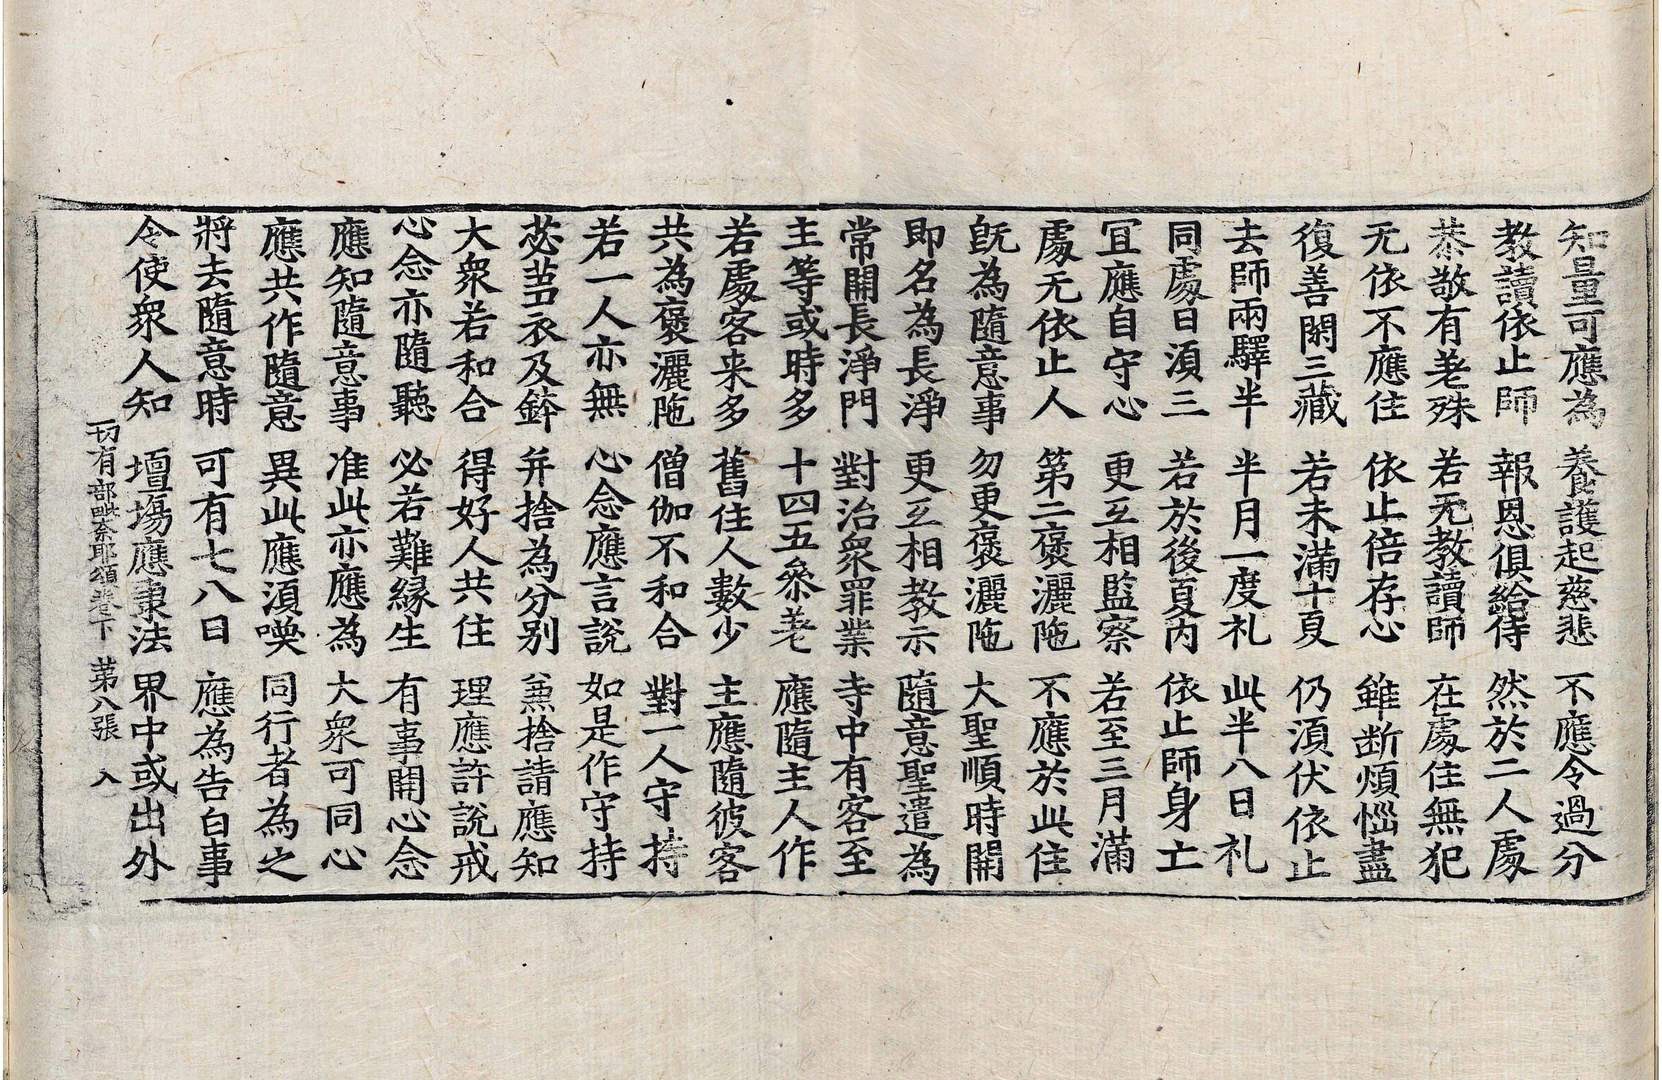 知量可應為 養護起慈悲 不應令過分
教讀依止師 報恩俱給侍 然於二人處
恭敬有差殊 若无教讀師 在處住無犯
无依不應住 依止倍存心 雖断煩惱盡
復善閑三藏 若未滿十夏 仍湏伏依止
去師兩驛半 半月一度礼 此半八日礼
同處日湏三 若於後夏內 依止師身亡
冝應自守心 更互相監察 若至三月滿
處无依止人 第二褒灑陁 不應於此住
旣為隨意事 勿更褒灑陁 大聖順時開
即名為長淨 更互相教示 隨意聖遣為
常開長淨門 對治衆罪業 寺中有客至
主等或時多 十四五叅差 應隨主人作
若處客来多 舊住人數少 主應隨彼客
共為褒灑陁 僧伽不和合 對一人守持
若一人亦無 心念應言說 如是作守持
苾芻衣及鉢 并捨為分別 兼捨請應知
大衆若和合 得好人共住 理應許說戒
心念亦隨聽 必若難緣生 有事開心念
應知隨意事 准此亦應為 大衆可同心
應共作隨意 異此應湏喚 同行者為之
將去隨意時 可有七八日 應為告白事
令使衆人知 壇場應稟法 界中或出外
一切有部毗奈耶頌卷下 第八張 入